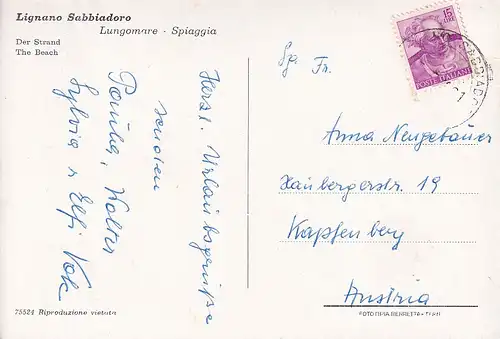 Lignano Sabbiadoro
Lungomare - Spiaggia
Der Strand
The Beach
Herzl. Urlaubsgrüße
senden
Paula, Walter
Sylvia u Elfi
75524 Riproduzione vietata
15
LIRE
POSTE ITALIANE
Sg. Fr.
Anna Neugebauer
Haubergerstr. 19
Kapfenberg
Austria